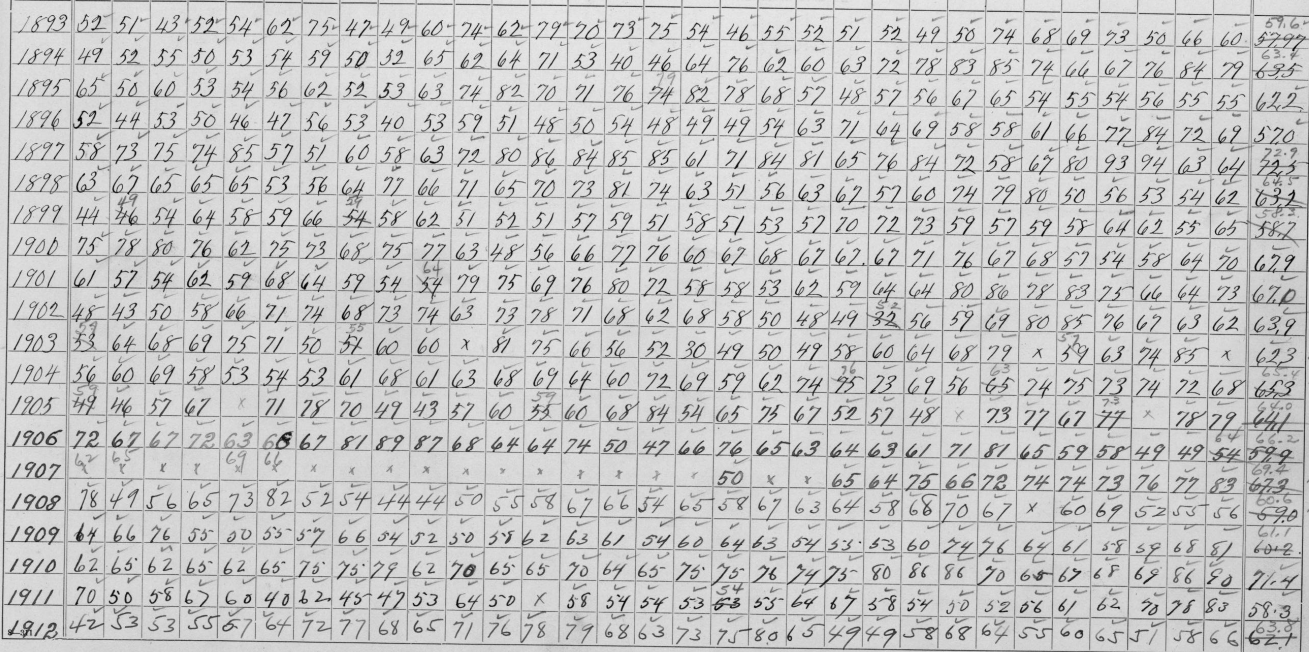 59.6
1893 52 51 43 52 54 62 75 47 49 60 74 62 79 70 73 75 54 46 55 52 51 52 49 50 74 68 69 73 50 66 60 57.97
63.4
1894 49 52 55 50 53 54 59 50 52 65 62 64 71 53 40 46 64 76 62 60 63 72 78 83 85 74 66 67 76 84 79 63.5
79
1895 65 50 60 53 54 56 62 52 53 63 74 82 70 71 76 74 82 78 68 57 48 57 56 67 65 54 55 54 56 55 55 62.2
1896 52 44 53 50 46 47 56 53 40 53 59 51 48 50 54 48 49 49 54 63 71 64 69 58 58 61 66 77 84 72 69 57.0
72.9
1897 58 73 75 74 85 57 51 60 58 63 72 80 86 84 85 85 61 71 84 81 65 76 84 72 58 67 80 93 94 63 64 72.5
64.5
1898 63 67 65 65 65 53 56 64 77 66 71 65 70 73 81 74 63 51 56 63 67 57 60 74 79 80 50 56 53 54 62 63.2
49 59 58.2
1899 44 46 54 64 58 59 66 54 58 62 51 52 51 57 59 51 58 51 53 57 70 72 73 59 57 59 58 64 62 55 65 58.7
1900 75 78 80 76 62 75 73 68 75 77 63 48 56 66 77 76 60 67 68 67 67. 67 71 76 67 68 57 54 58 64 70 67.9
64
1901 61 57 54 62 59 68 64 59 54 54 79 75 69 76 80 72 58 58 53 62 59 64 64 80 86 78 83 75 66 64 73 67.0
52
1902 48 43 50 58 66 71 74 68 73 74 63 73 78 71 68 62 68 58 50 48 49 32 56 59 69 80 85 76 67 63 62 63.9
59 55 57
1903 53 64 68 69 75 71 50 51 60 60 x 81 75 66 56 52 30 49 50 49 58 60 64 68 79 x 59 63 74 85 x 62.3
76 63 65.4
1904 56 60 69 58 53 54 53 61 68 61 63 68 69 64 60 72 69 59 62 74 75 73 69 56 65 74 75 73 74 72 68 65.3
59 59 73 64.0
1905 49 46 57 67 x 71 78 70 49 43 57 60 55 60 68 84 54 65 75 67 52 57 48 x 73 77 67 77 x 78 79 64.1
64 66.2
1906 72 67 67 72 63 66 67 81 89 87 68 64 64 74 50 47 66 76 65 63 64 63 61 71 81 65 59 58 49 49 54 59.9
62 65 69 66 69.4
1907 x x x x x x x x x x x x x x x x x 50 x x 65 64 75 66 72 74 74 73 76 77 83 67.2
60.6
1908 78 49 56 65 73 82 52 54 44 44 50 55 58 67 66 54 65 58 67 63 64 58 68 70 67 x 60 69 52 55 56 69.0
61.1
1909 64 66 76 55 50 55 57 66 54 52 50 58 62 63 61 54 60 64 63 54 55 53 60 74 76 64 61 58 59 68 81 60.2
1910 62 65 62 65 62 65 75 75 79 62 70 65 65 70 64 65 75 75 76 74 75 80 86 86 70 65 67 68 69 86 90 71.4
54
1911 70 50 58 67 60 40 62 45 47 53 64 50 x 58 54 54 53 63 55 64 67 58 54 50 52 56 61 62 70 78 83 58.3
63.8
1912 42 53 53 55 67 64 72 77 68 65 71 76 78 79 68 63 73 75 80 65 49 49 58 68 64 55 60 65 51 58 66 62.1